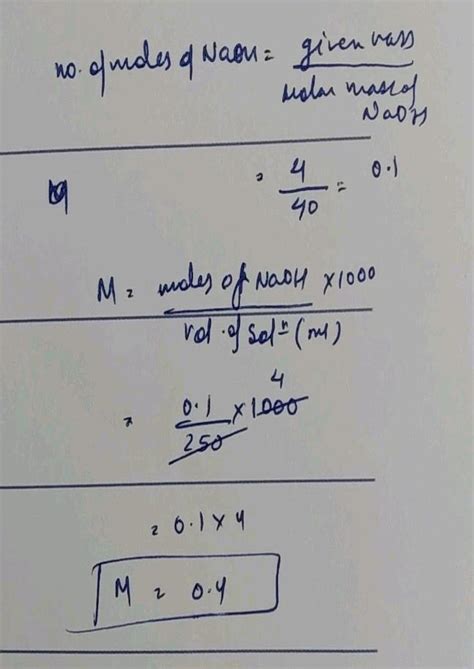 no. of moles of NaOH = given mass
molar mass of
NaOH
= 4 = 0.1
40
M = moles of NaOH × 1000
vol. of Solⁿ (ml)
4
= 0.1 × 1000
250
= 0.1 × 4
M = 0.4